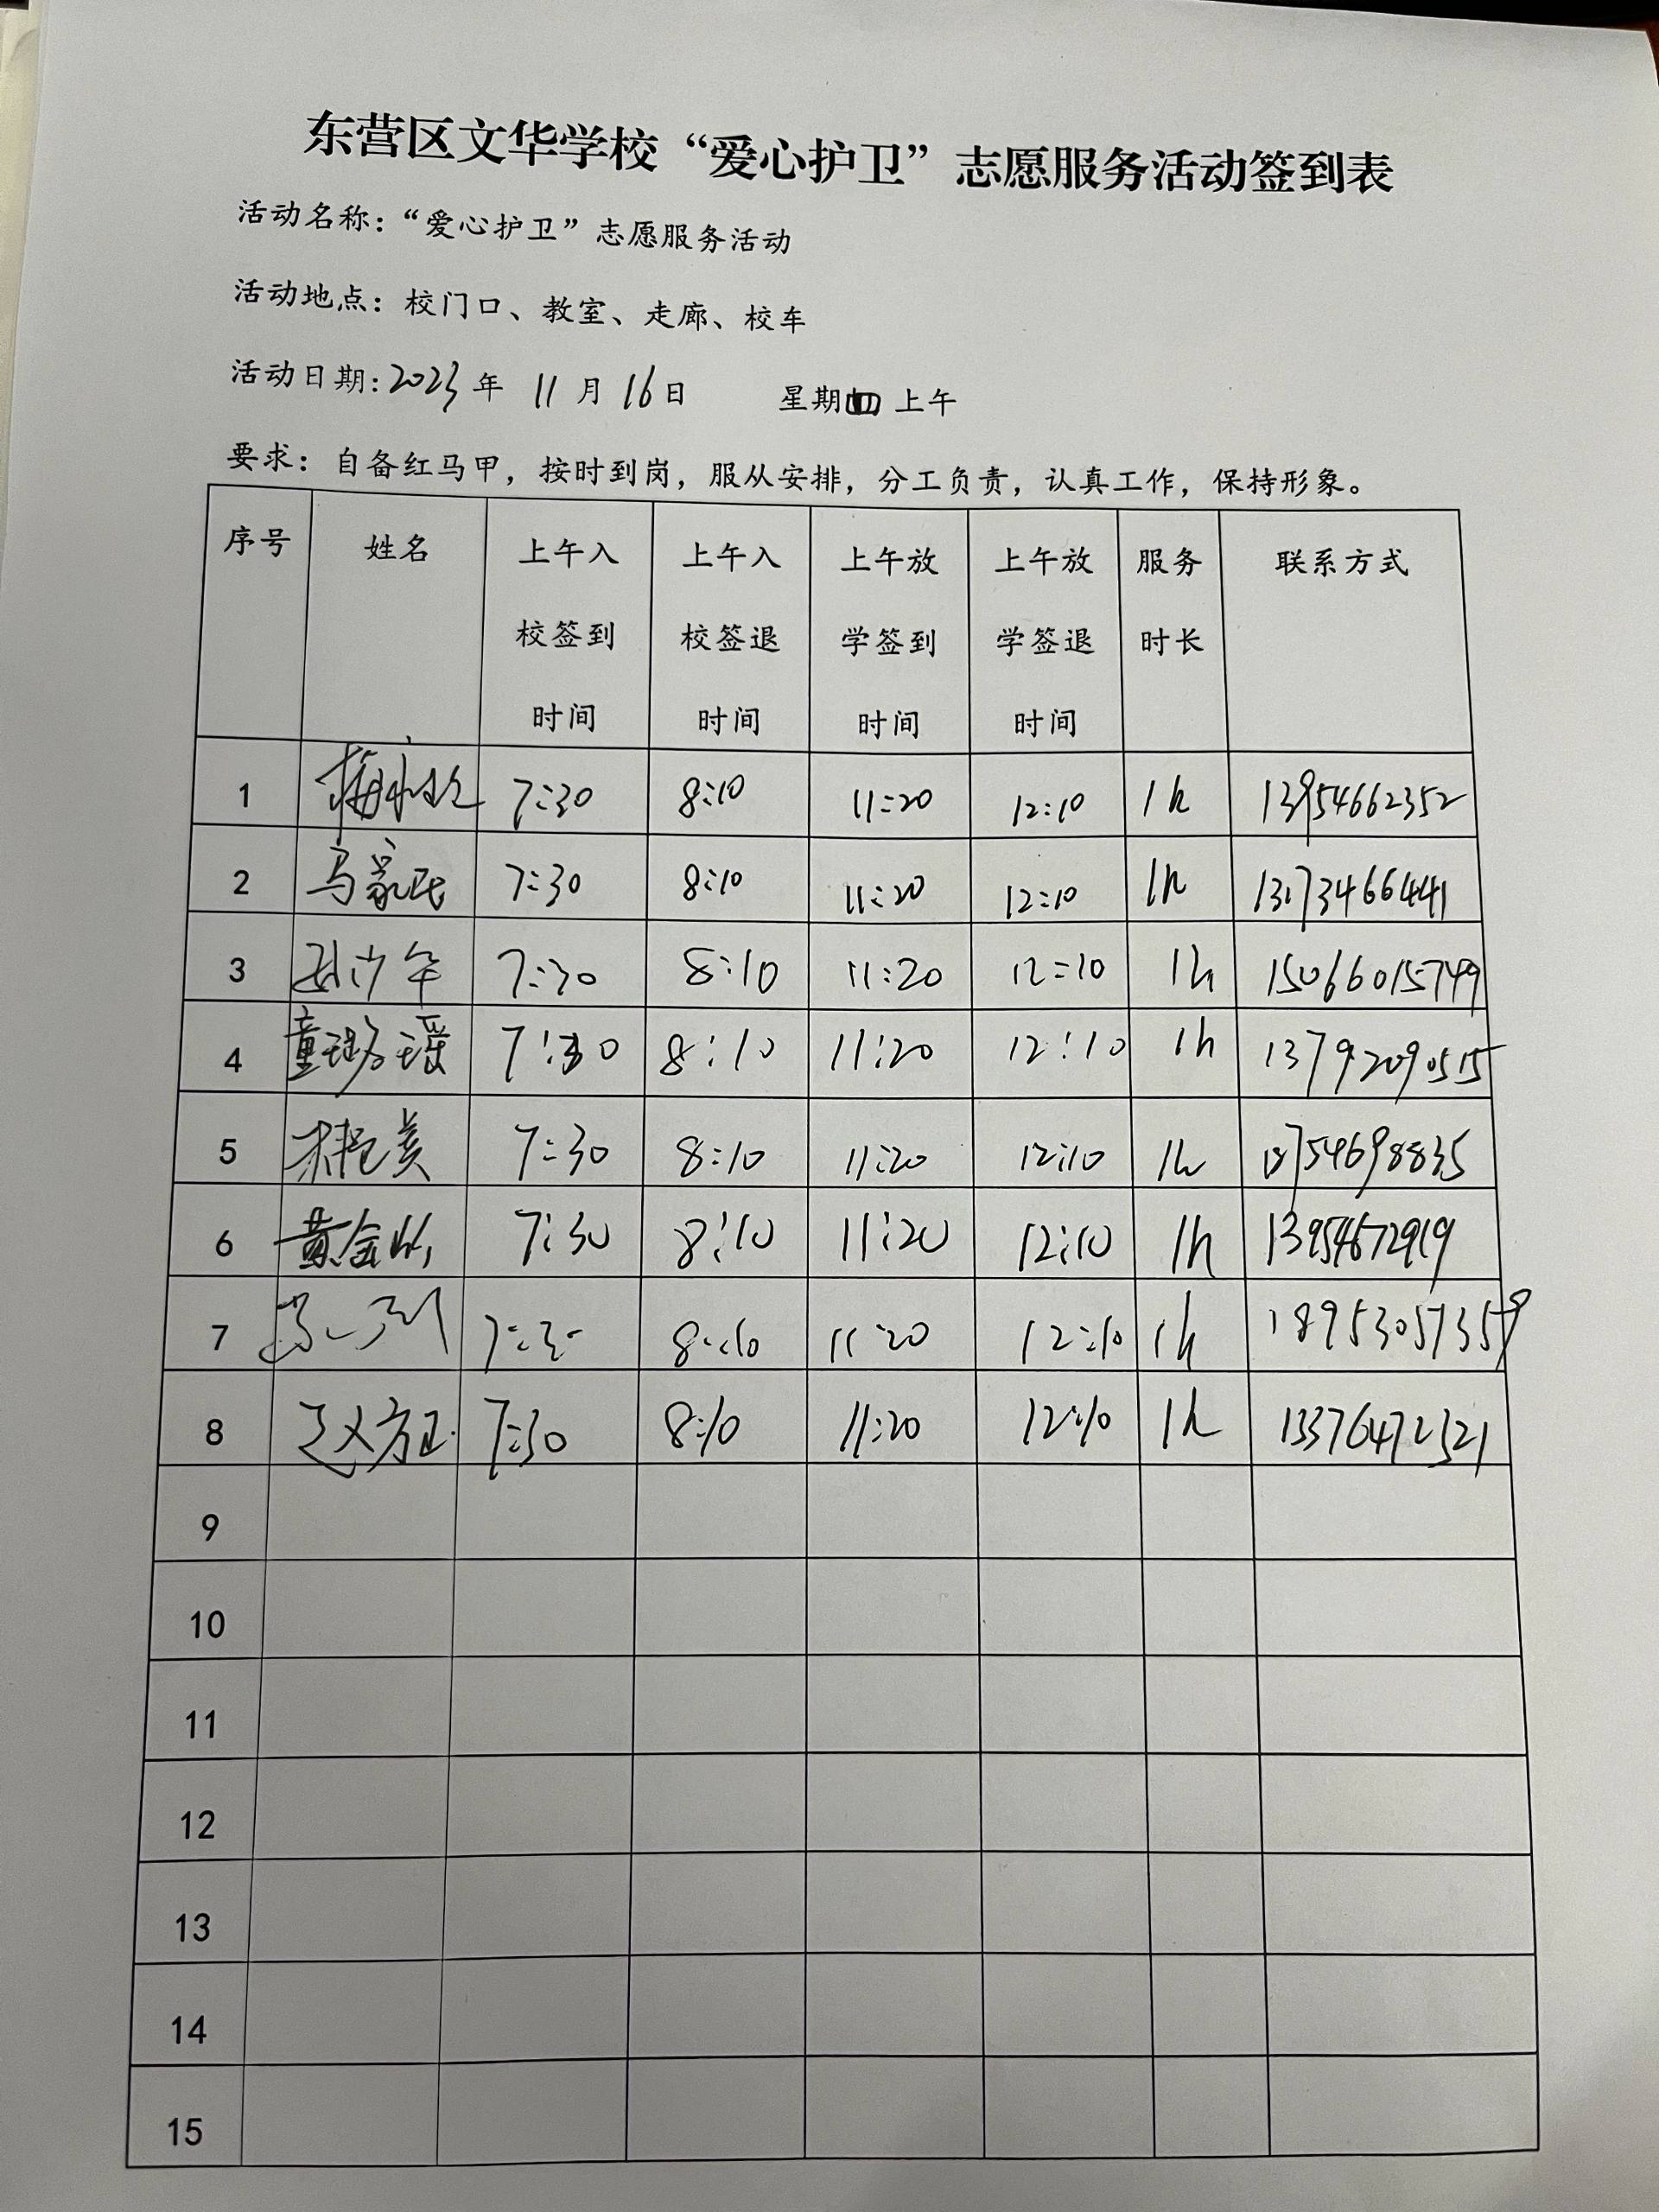 东营区文华学校“爱心护卫”志愿服务活动签到表
活动名称：“爱心护卫”志愿服务活动
活动地点：校门口、教室、走廊、校车
活动日期：2023年 11月16日 星期四 上午
要求：自备红马甲，按时到岗，服从安排，分工负责，认真工作，保持形象。
序号 姓名 上午入校签到时间 上午入校签退时间 上午放学签到时间 上午放学签退时间 服务时长 联系方式
1 7:30 8:10 11:20 12:10 1h 13954662352
2 马家民 7:30 8:10 11:20 12:10 1h 13173466441
3 7:30 8:10 11:20 12:10 1h 15066015749
4 童璐瑶 7:30 8:10 11:20 12:10 1h 13792090515
5 林艳美 7:30 8:10 11:20 12:10 1h 18754698835
6 黄金 7:30 8:10 11:20 12:10 1h 13954672919
7 7:30 8:10 11:20 12:10 1h 18953057359
8 赵方正 7:30 8:10 11:20 12:10 1h 13376472521
9
10
11
12
13
14
15